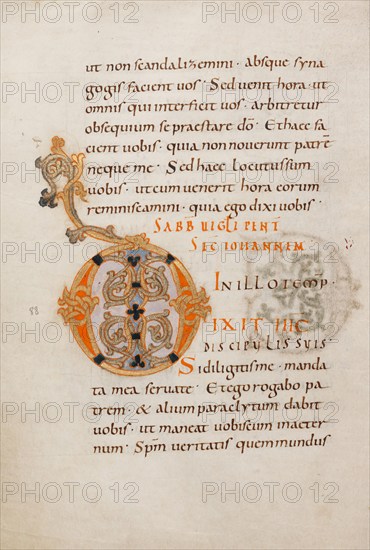 ut non scandalizemini · absque syna
gogis facient vos · Sed venit hora · ut
omnis qui interficit vos · arbitretur
obsequium se praestare dō · Et haec fa
cient vobis · quia non noverunt patrē
neque me · Sed haec locutus sum
vobis · ut cum venerit hora eorum
reminiscamini · quia ego dixi vobis
SABB UIGL PENT
SEC IOHANNEM
IN ILLO TEMP ·
IXIT IHC
DISCIPULIS SUIS
Si diligitis me · manda
ta mea servate · Et ego rogabo pa
trem · & alium paraclytum dabit
vobis · ut maneat vobiscum in aeter
num · Spm veritatis quem mundus
88
PHOTO 12